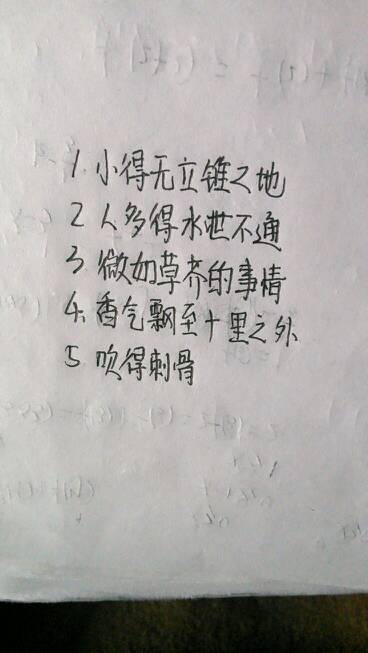 1. 小得无立锥之地
2 人多得水泄不通
3. 微如草芥的事情
4. 香气飘至十里之外
5. 吹得刺骨